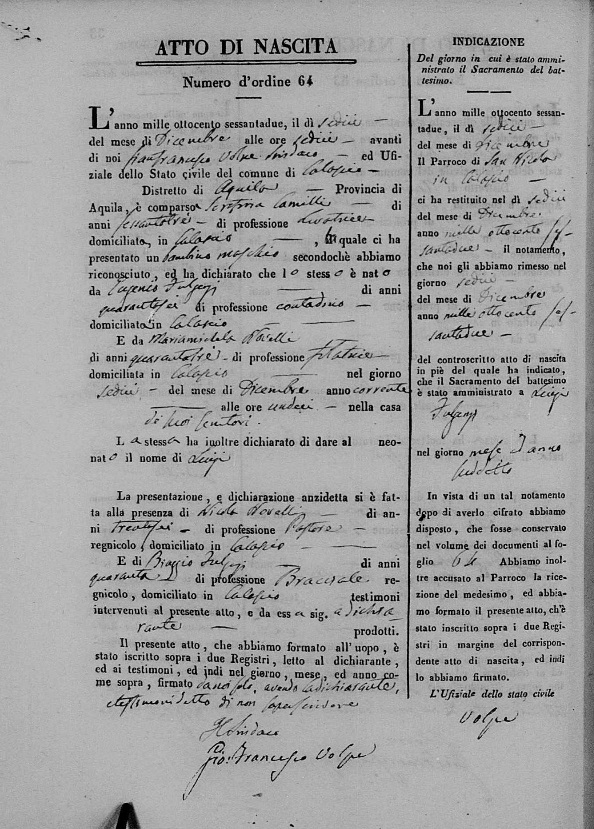 ATTO DI NASCITA
Numero d'ordine 64
L'anno mille ottocento sessantadue, il dì sedici
del mese di Dicembre alle ore sedici avanti
di noi Gianfrancesco Volpe Sindaco ed Ufi-
ziale dello Stato civile del comune di Calascio
Distretto di Aquila Provincia di
Aquila, è comparsa Serafina Camilli di
anni sessantotrè di professione Levatrice
domiciliata in Calascio, quale ci ha
presentato un bambino maschio secondochè abbiamo
riconosciuto, ed ha dichiarato che lo stesso è nato
da Eugenio Fulgenzi di anni
quarantasei di professione contadino
domiciliato in Calascio
E da Mariamichela Novelli
di anni quarantatrè di professione filatrice
domiciliata in Calascio nel giorno
sedici del mese di Dicembre anno corrente
alle ore undici nella casa
de' suoi genitori.
La stessa ha inoltre dichiarato di dare al neo-
nato il nome di Luigi
La presentazione, e dichiarazione anzidetta si è fat-
ta alla presenza di Nicola Novelli di an-
ni trentasei di professione Pastore
regnicolo, domiciliato in Calascio
E di Biaggio Fulgenzi di anni
quaranta di professione Bracciale re-
gnicolo, domiciliato in Calascio testimoni
intervenuti al presente atto, e da essa sig. a dichia-
rante prodotti.
Il presente atto, che abbiamo formato all'uopo, è
stato iscritto sopra i due Registri, letto al dichiarante,
ed ai testimoni, ed indi nel giorno, mese, ed anno co-
me sopra, firmato da noi solo, avendo la dichiarante,
e testimoni detto di non saper scrivere
Il Sindaco
Gio: Francesco Volpe
INDICAZIONE
Del giorno in cui è stato ammi-
nistrato il Sacramento del bat-
tesimo.
L'anno mille ottocento sessan-
tadue, il dì sedici
del mese di Dicembre
Il Parroco di San Nicola
in Calascio
ci ha restituito nel dì sedici
del mese di Dicembre
anno mille ottocento ses-
santadue il notamento,
che noi gli abbiamo rimesso nel
giorno sedici
del mese di Dicembre
anno mille ottocento ses-
santadue
del controscritto atto di nascita
in piè del quale ha indicato,
che il Sacramento del battesimo
è stato amministrato a Luigi
Fulgenzi
nel giorno mese ed anno
suddetto
In vista di un tal notamento
dopo di averlo cifrato abbiamo
disposto, che fosse conservato
nel volume dei documenti al fo-
glio 64 Abbiamo inol-
tre accusato al Parroco la rice-
zione del medesimo, ed abbia-
mo formato il presente atto, ch'è
stato inscritto sopra i due Regi-
stri in margine del corrispon-
dente atto di nascita, ed indi
lo abbiamo firmato.
L'Ufiziale dello stato civile
Volpe